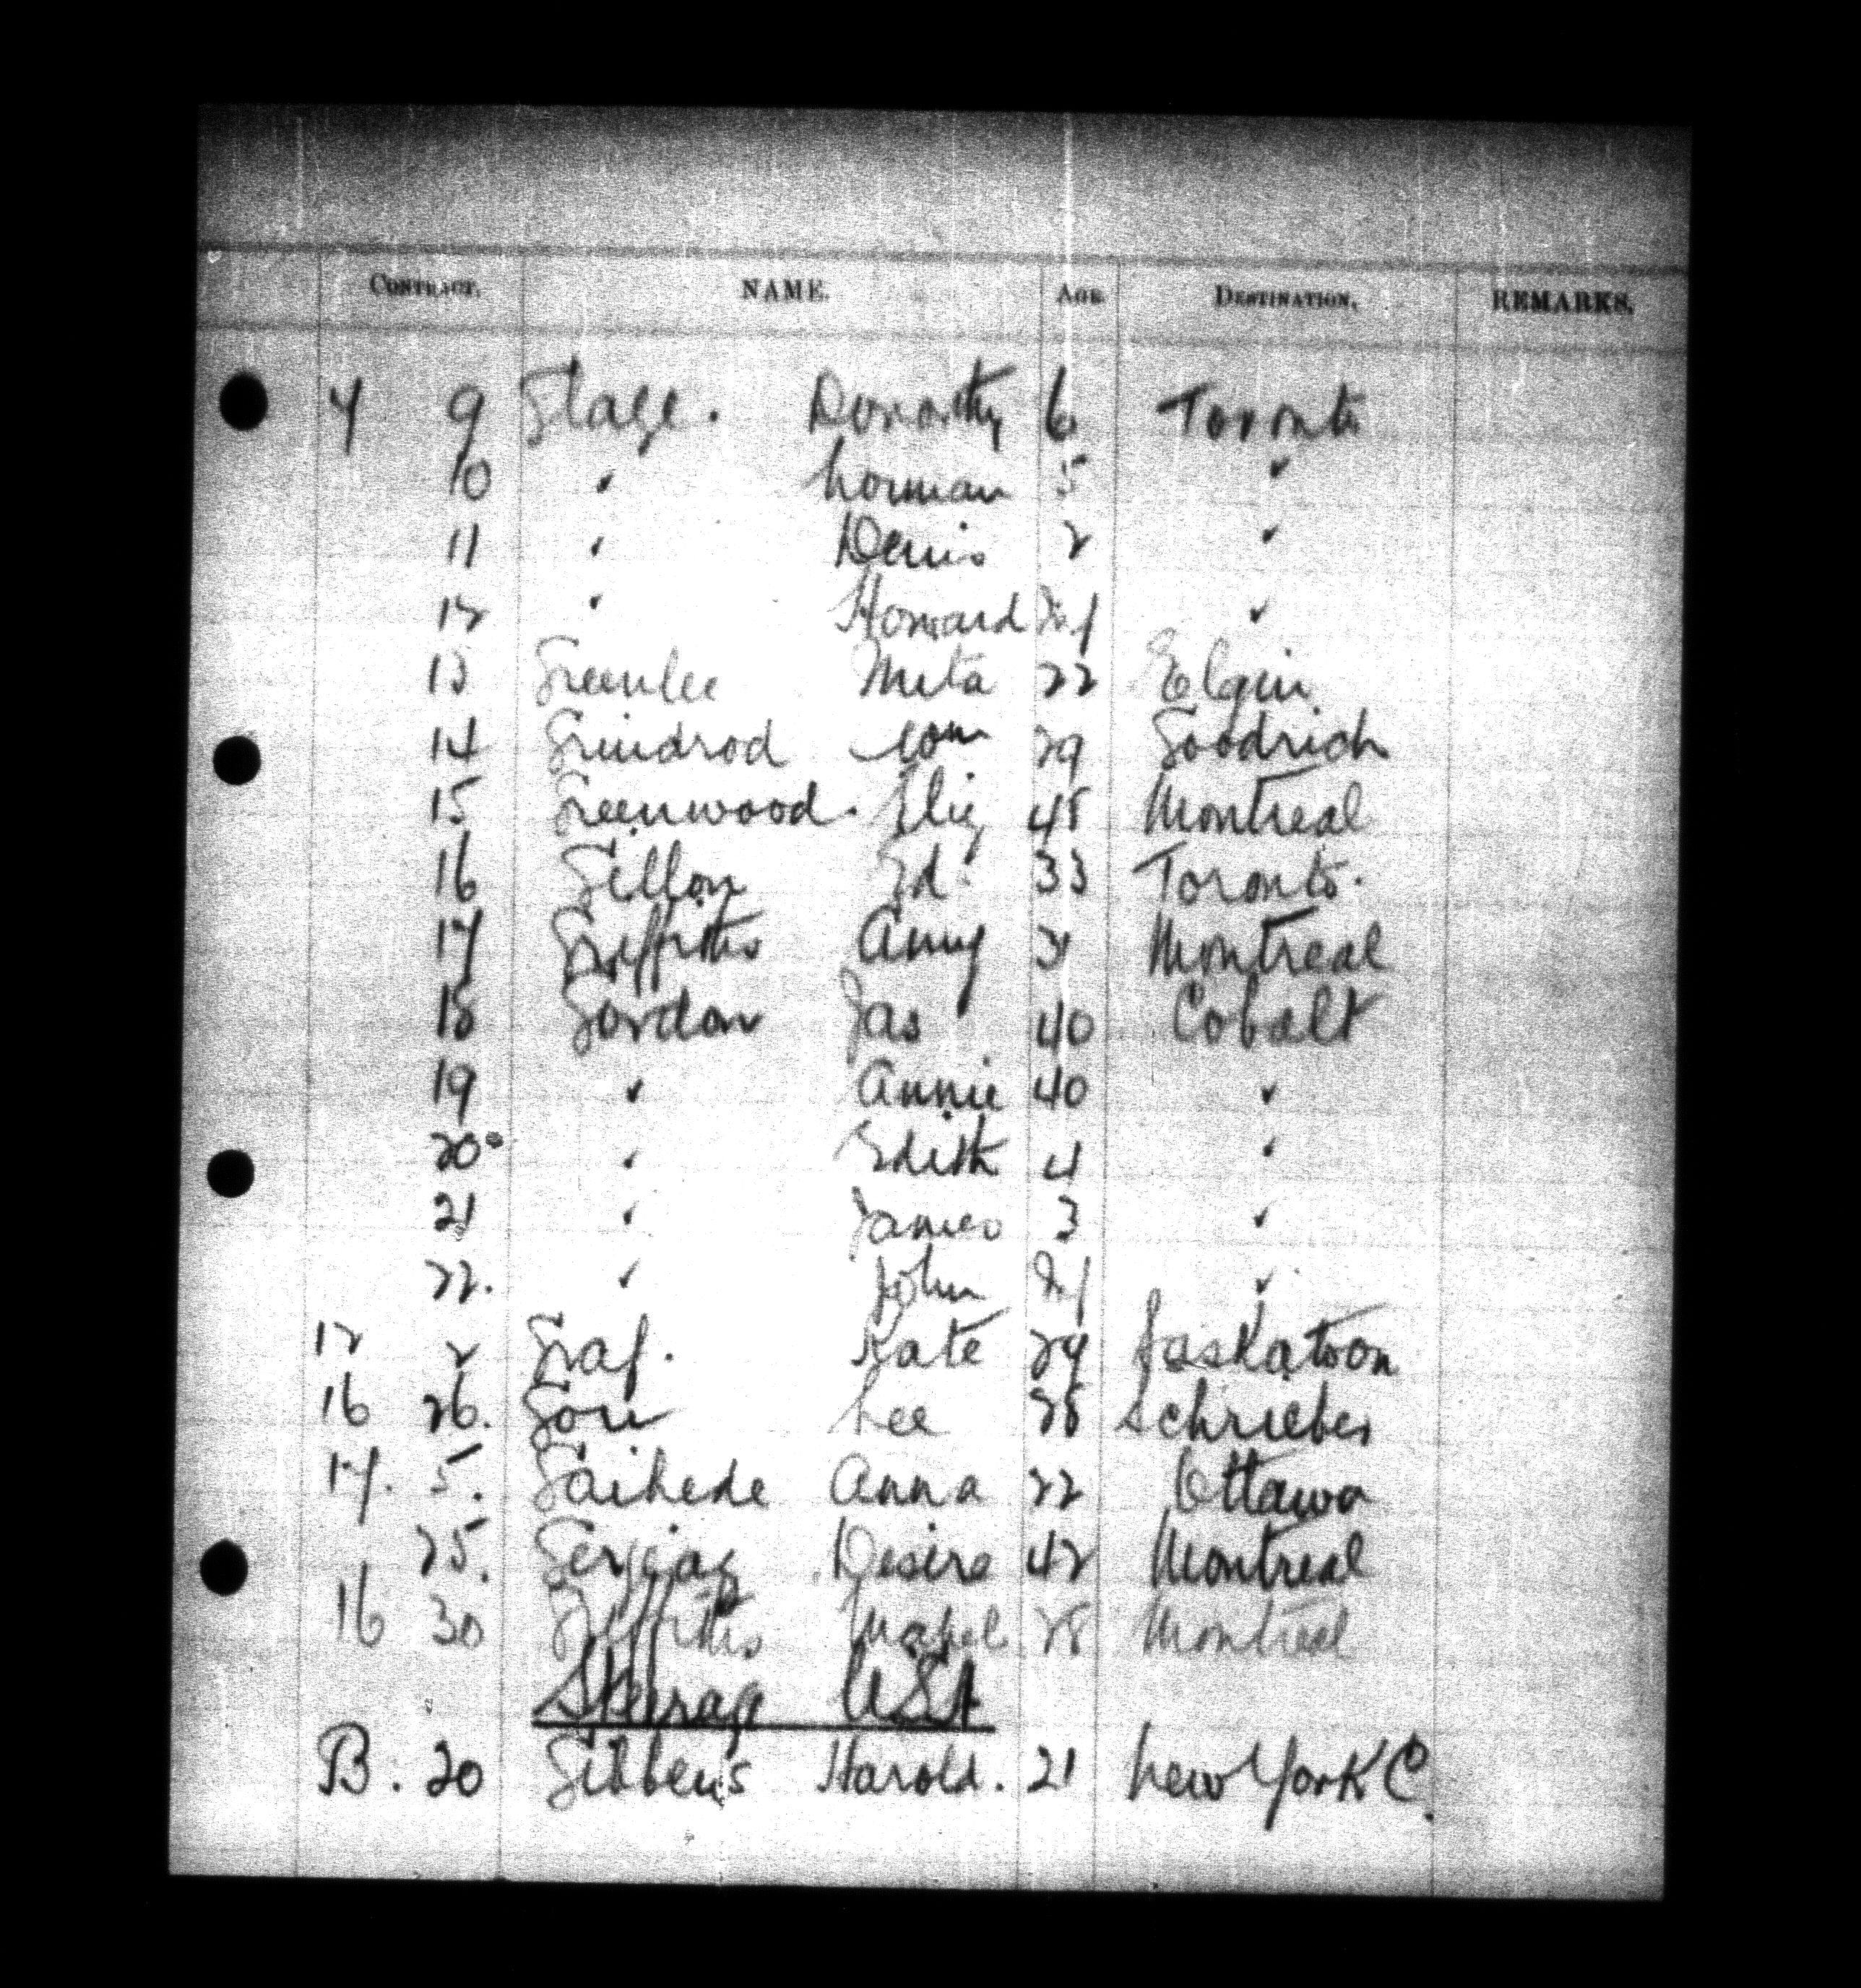 CONTRACT. NAME. AGE DESTINATION. REMARKS.
7 9 Dorothy 6 Toronto
10 " Norman 5 "
11 " Denis 2 "
12 " Howard Inf "
13 Greenlee Meta 22 Elgin
14 Grindrod 29 Goodrich
15 Greenwood. Eliz 45 Montreal
16 Ed. 33 Toronto.
17 Griffiths Amy Montreal
18 Gordon Jas 40 Cobalt
19 " Annie 40 "
20 " Edith 4 "
21 " James 3 "
22. " John Inf "
12 2 Graf. Kate Saskatoon
16 26. Lee 28 Schrieber
17. 5. Anna 22 Ottawa
25. Desire 42 Montreal
16 30 Griffiths 28 Montreal
Steerage USA
B. 20 Gibbens Harold. 21 New York C.